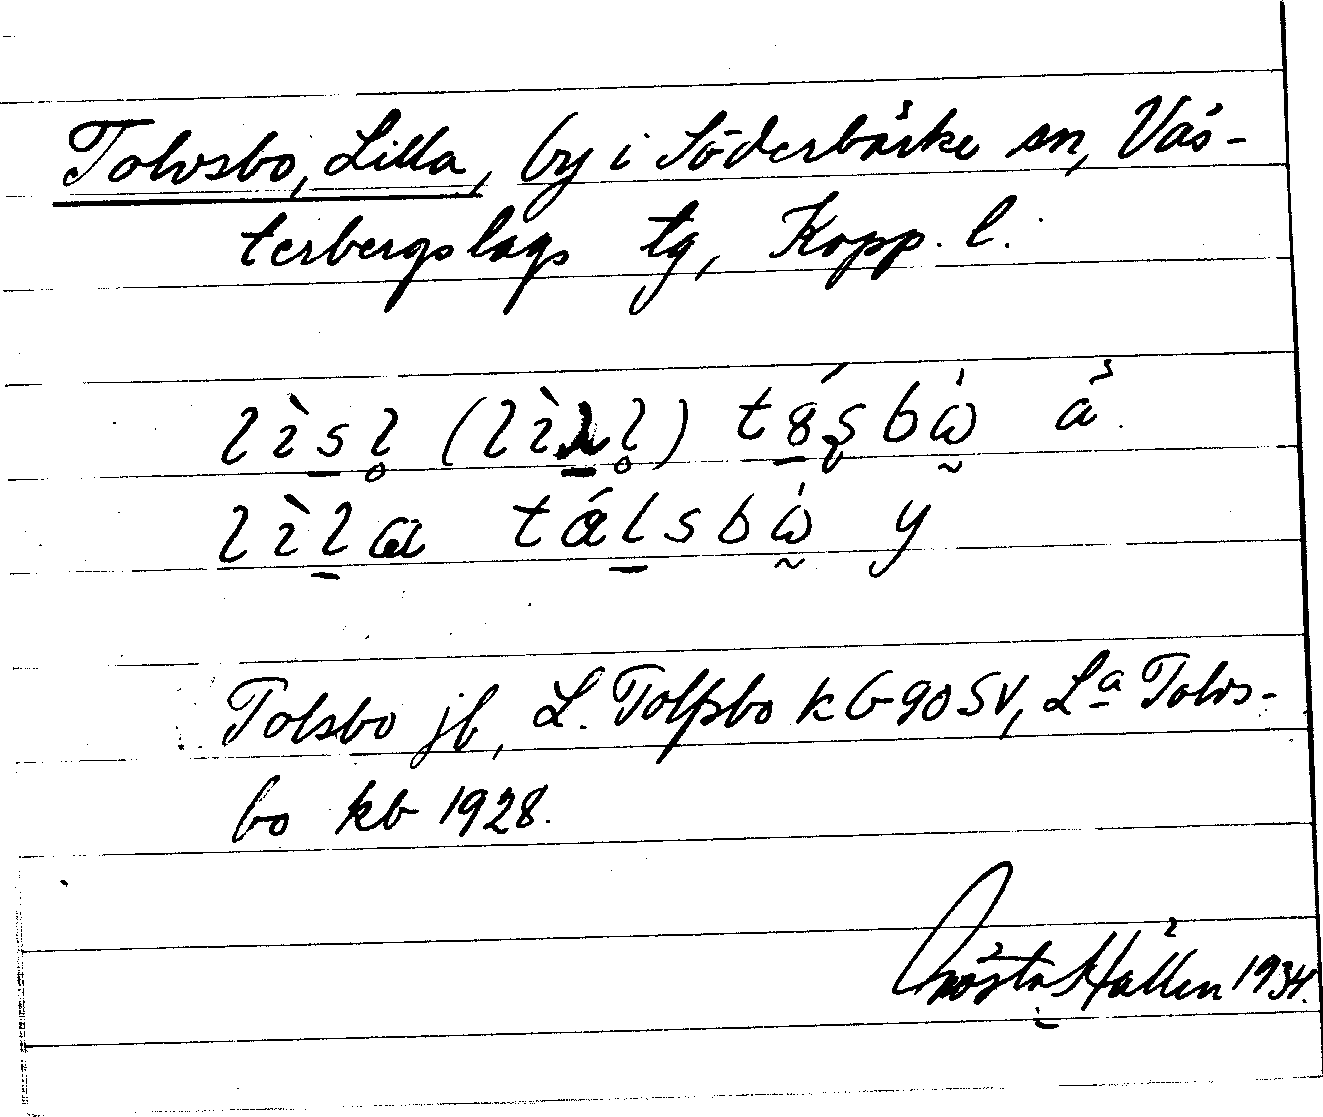 Tolvsbo, Lilla, by i Söderbärke sn, Väs-
terbergslags tg, Kopp. l.
Tolsbo jb, L. Tolfsbo kb 90 SV, La Tolvs-
bo kb 1928.
Gösta Hallén 1934.